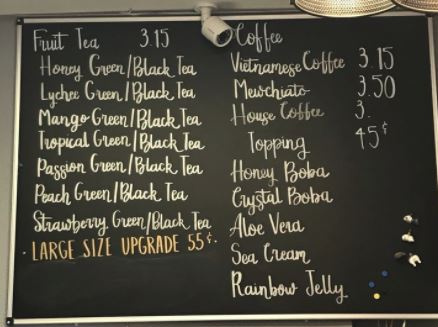 Fruit Tea 3.15
Honey Green/Black Tea
Lychee Green/Black Tea
Mango Green/Black Tea
Tropical Green/Black Tea
Passion Green/Black Tea
Peach Green/Black Tea
Strawberry Green/Black Tea
· LARGE SIZE UPGRADE 55¢ ·
Coffee
Vietnamese Coffee 3.15
Mewchiato 3.50
House Coffee 3.
Topping 45¢
Honey Boba
Crystal Boba
Aloe Vera
Sea Cream
Rainbow Jelly